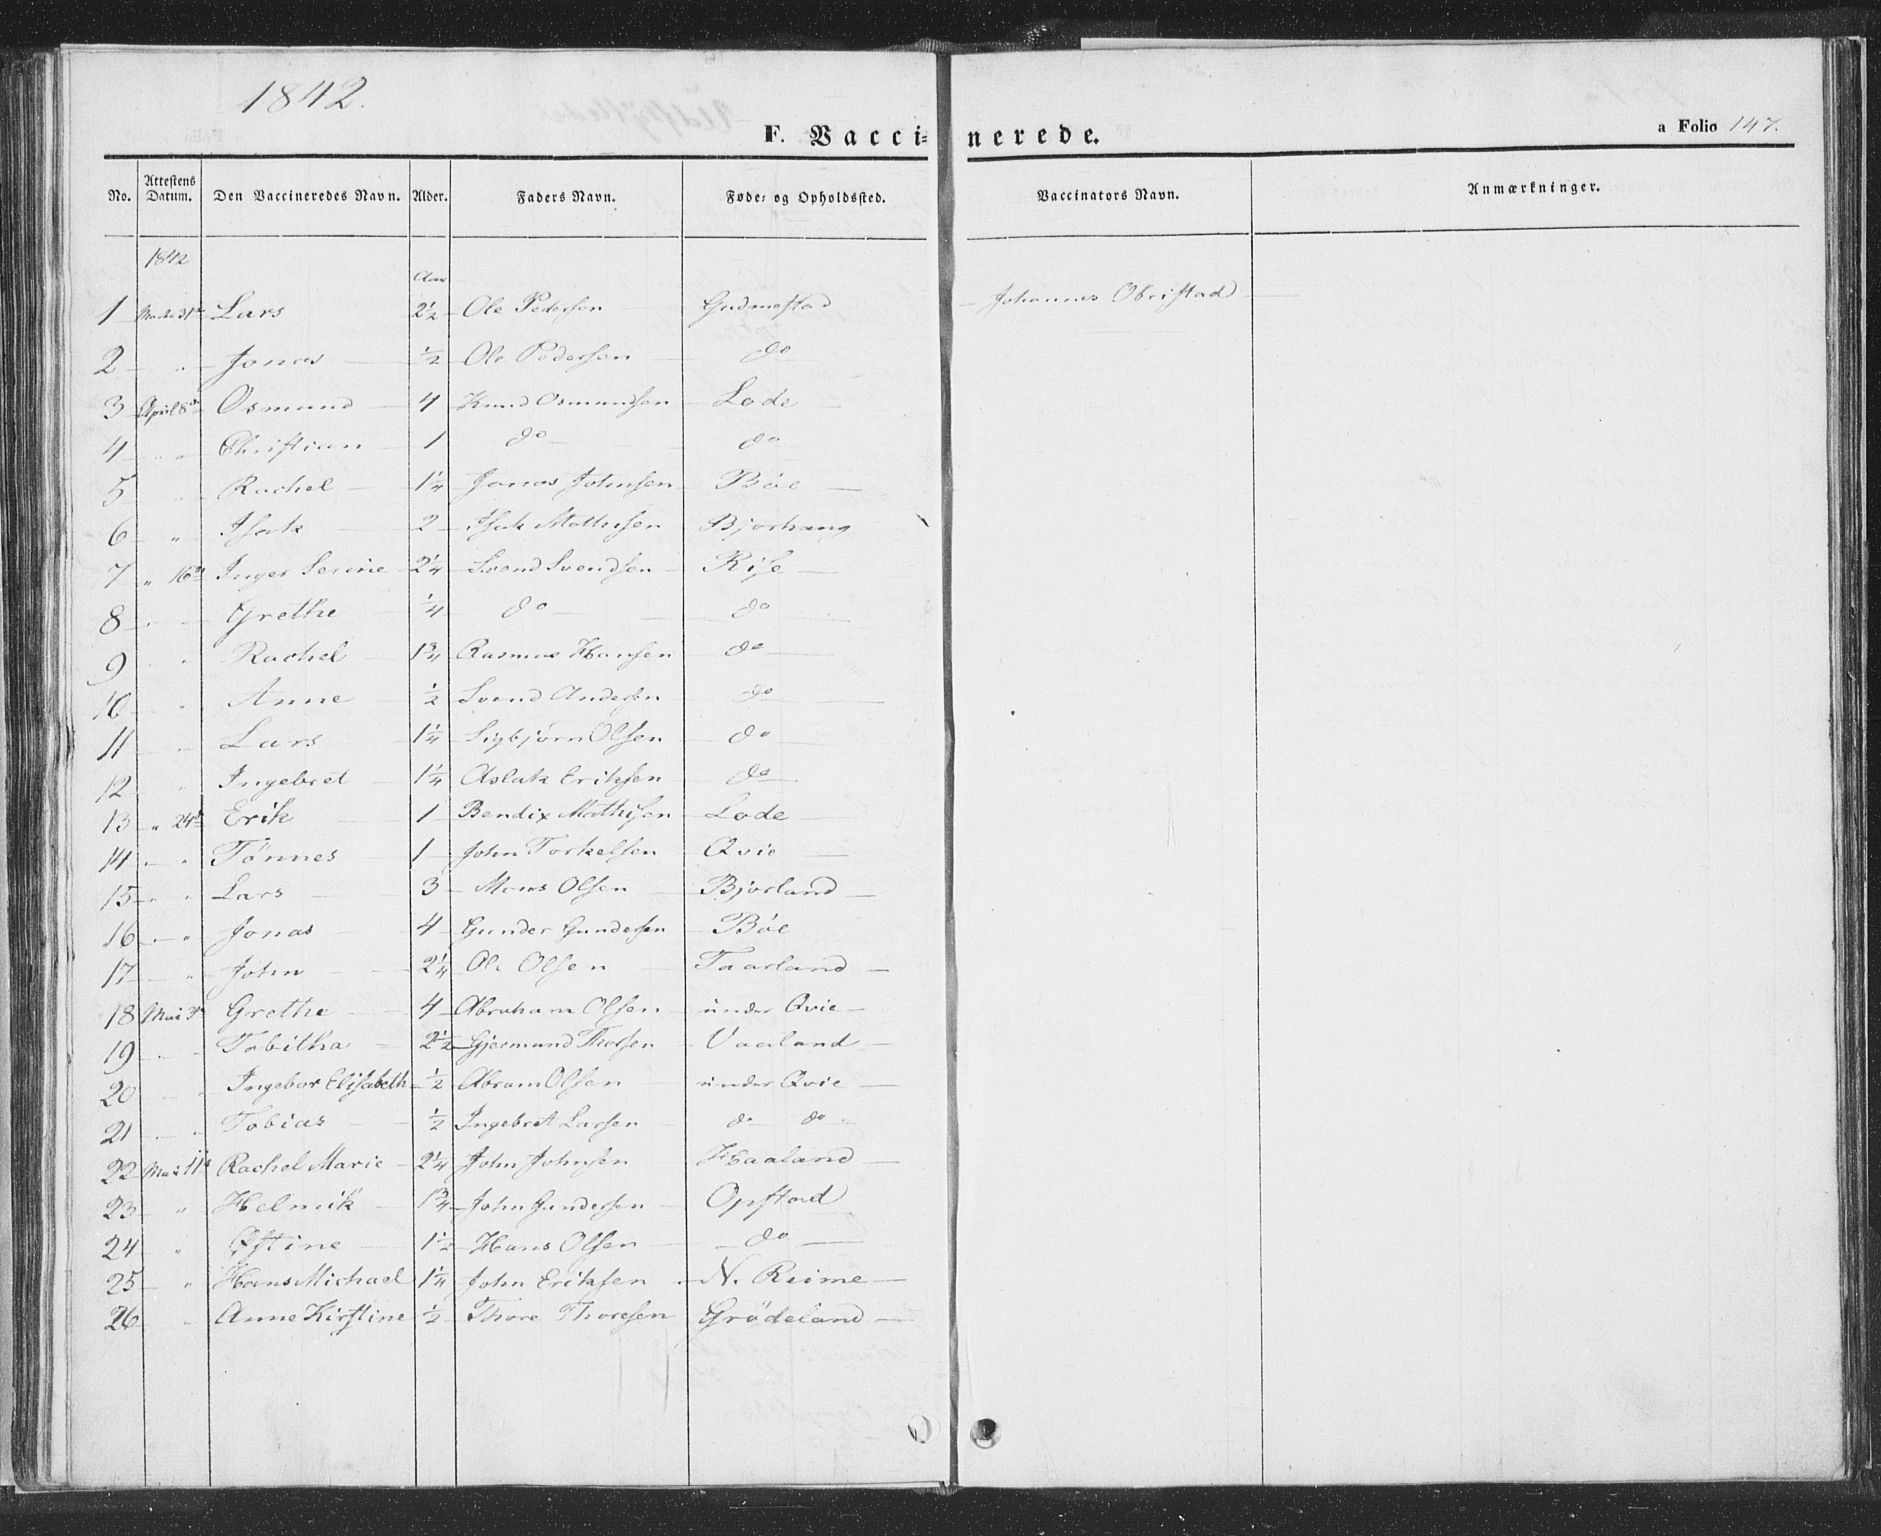 1842.
F. Vaccinerede.
a Folio 147.
No. Attestens Datum. Den Vaccineredes Navn. Alder. Faders Navn. Føde- og Opholdssted. Vaccinators Navn. Anmærkninger.
1842
Aar
1 Marts 31te Lars 2½ Ole Pedersen Gudmestad Johannes Obristad
2 " Jonas ½ Ole Pedersen do
3 April 8de Osmund 4 Knud Osmundsen Lode
4 " " Christian 1 do do
5 " Rachel 1¼ Jonas Johnsen Böe
6 " Isak 2 Isak Mathisen Bjorhaug
7 " 16de Inger Serine 2¼ Svend Svendsen Rise
8 " Grethe ¼ do do
9 " Rachel 1¾ Rasmus Hansen do
10 " Anne ½ Svend Andersen do
11 " Lars 1¼ Sigbjørn Olsen do
12 " Ingebret 1¼ Aslak Eriksen do
13 " 24de Erik 1 Bendix Mathisen Lode
14 " " Tönnes 1 John Torkelsen Qvie
15 " " Lars 3 Mons Olsen Bjorland
16 " " Jonas 4 Gunder Gundersen Böe
17 " John 2¼ Ole Olsen Taarland
18 Mai 3de Grethe 4 Abraham Olsen under Qvie
19 " " Tobitha 2½ Gjermund Thorsen Vaaland
20 " " Ingebor Elisabeth ½ Abram Olsen under Qvie
21 " " Tobias ½ Ingebret Larsen do do
22 Mai 11te Rachel Marie 2¼ John Johnsen Haaland
23 " Helmik 1¾ John Gundersen Opstad
24 " Østine 1½ Hans Olsen do
25 " Hans Michael 1¼ John Eriksen N. Reime
26 " Anne Kirstine ½ Thore Thoresen Grödeland